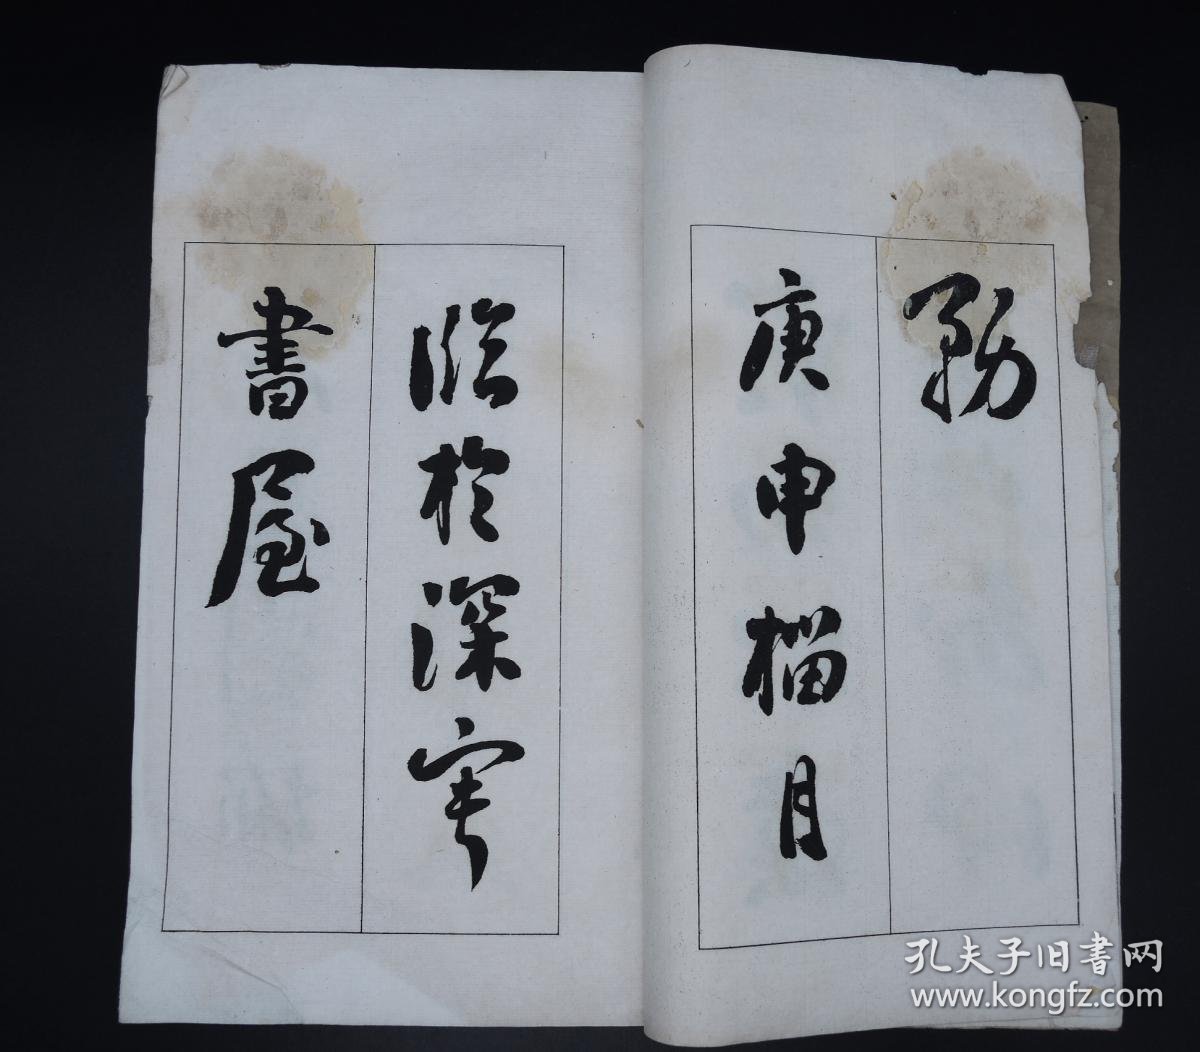 務
庚申榴月
臨於深寧
書屋
孔夫子旧书网
www.kongfz.com